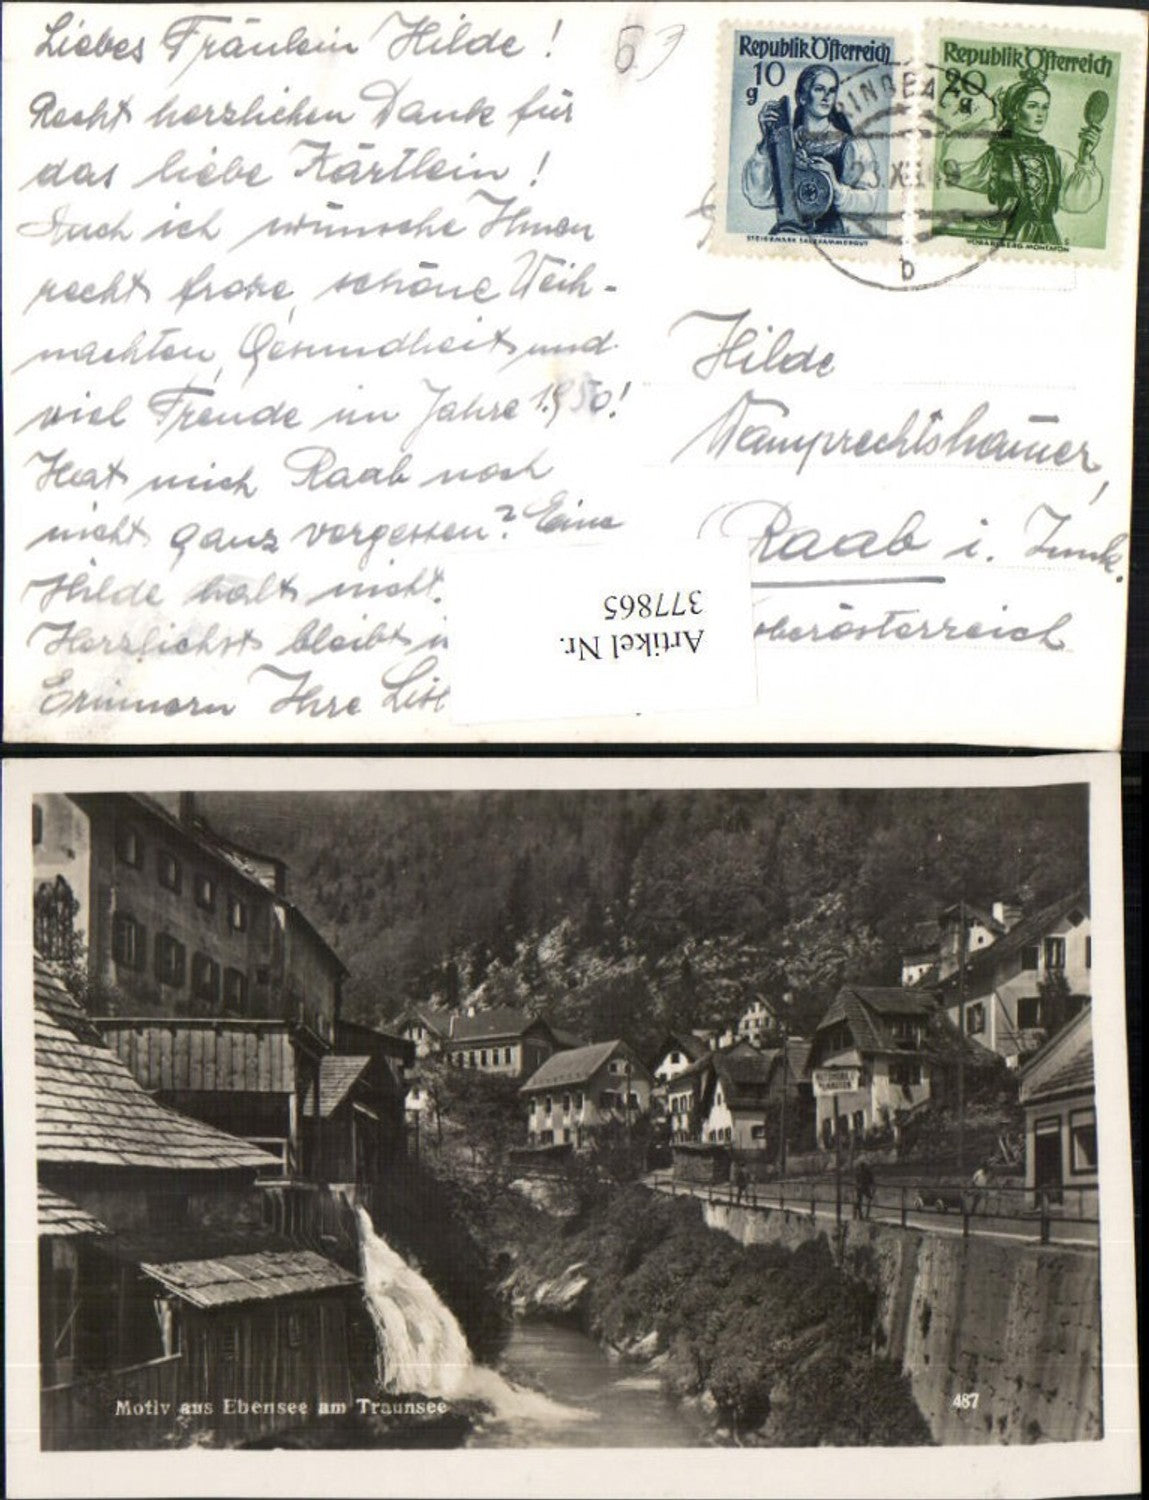 Liebes Fräulein Hilde!
Recht herzlichen Dank für
das liebe Kärtlein!
Auch ich wünsche Ihnen
recht frohe, schöne Weih-
nachten, Gesundheit und
viel Freude im Jahre 1950!
Hat mich Raab noch
nicht ganz vergessen? Eine
Hilde halt nicht.
Herzlichst bleibt i
Erinnern Ihre
67
Republik Österreich
10
g
STEIERMARK SALZKAMMERGUT
Republik Österreich
20
g
VORARLBERG-MONTAFON
23.XII.49
b
Hilde
Wamprechtshamer,
Raab i. Innk.
Oberösterreich
Artikel Nr.
377865
Motiv aus Ebensee am Traunsee
487